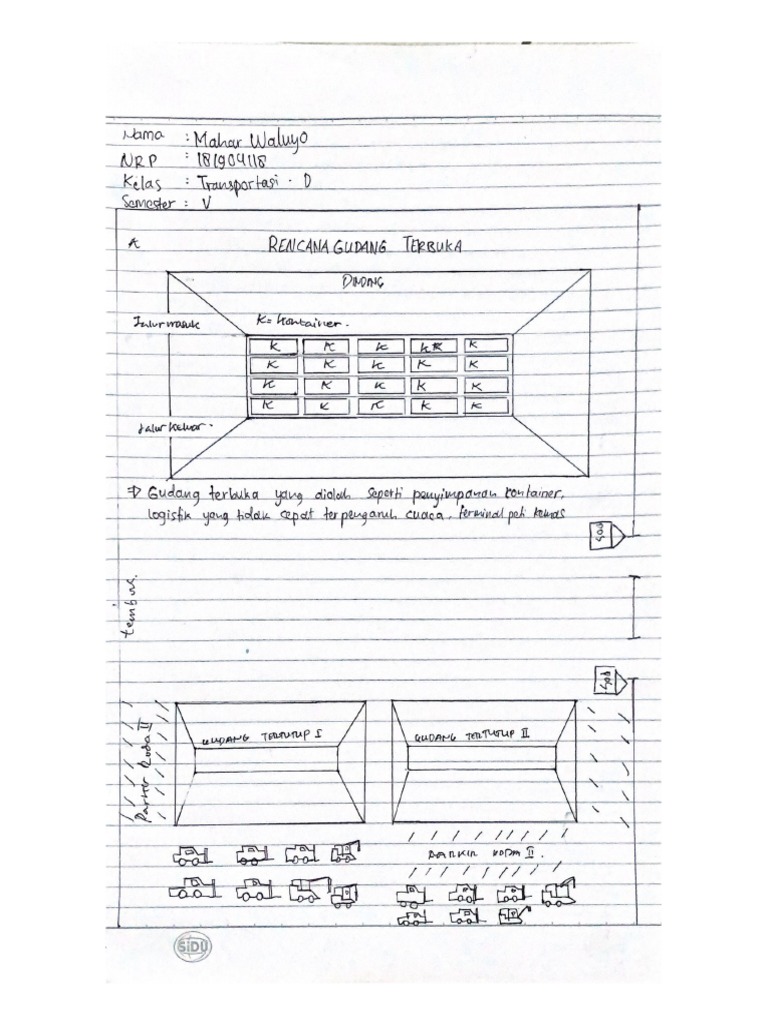 Nama : Mahar Waluyo
NRP : 181904118
Kelas : Transportasi - D
Semester : V
A
RENCANA GUDANG TERBUKA
DINDING
Jalur masuk
K = Kontainer.
K K K KK K
K K K K K
K K K K K
K K K K K
Jalur Keluar.
⇒ Gudang terbuka yang diolah seperti penyimpanan kontainer,
logistik yang tidak cepat terpengaruh cuaca, terminal peti kemas
POS
tembus.
POS
Parkir Roda II
GUDANG TERTUTUP I
GUDANG TERTUTUP II
PARKIR RODA II.
SiDU